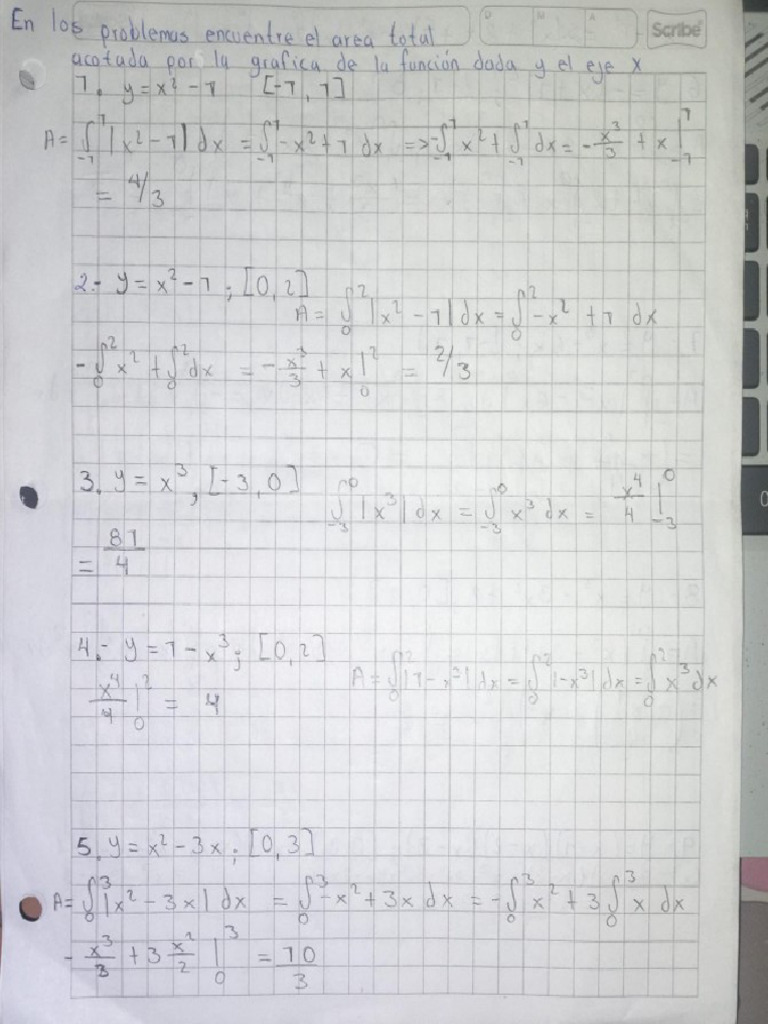 D M A
Scribe
En los problemas encuentre el area total
acotada por la grafica de la función dada y el eje x
1. y = x² - 1 [-1, 1]
A = ∫₋₁¹ |x² - 1| dx = ∫₋₁¹ -x² + 1 dx => -∫₋₁¹ x² + ∫₋₁¹ dx = -x³/3 + x |₋₁¹
= 4/3
2.- y = x² - 1 ; [0, 2]
A = ∫₀² |x² - 1| dx = ∫₀² -x² + 1 dx
-∫₀² x² + ∫₀² dx = -x³/3 + x |₀² = 2/3
3. y = x³, [-3, 0] ∫₋₃⁰ |x³| dx = ∫₋₃⁰ x³ dx = x⁴/4 |₋₃⁰
= 81/4
4.- y = 1 - x³; [0, 2] A = ∫₀² |1 - x³| dx = ∫₀² |-x³| dx = ∫₀² x³ dx
x⁴/4 |₀² = 4
5. y = x² - 3x ; [0, 3]
A = ∫₀³ |x² - 3x| dx = ∫₀³ -x² + 3x dx = -∫₀³ x² + 3∫₀³ x dx
- x³/3 + 3 x²/2 |₀³ = 10/3